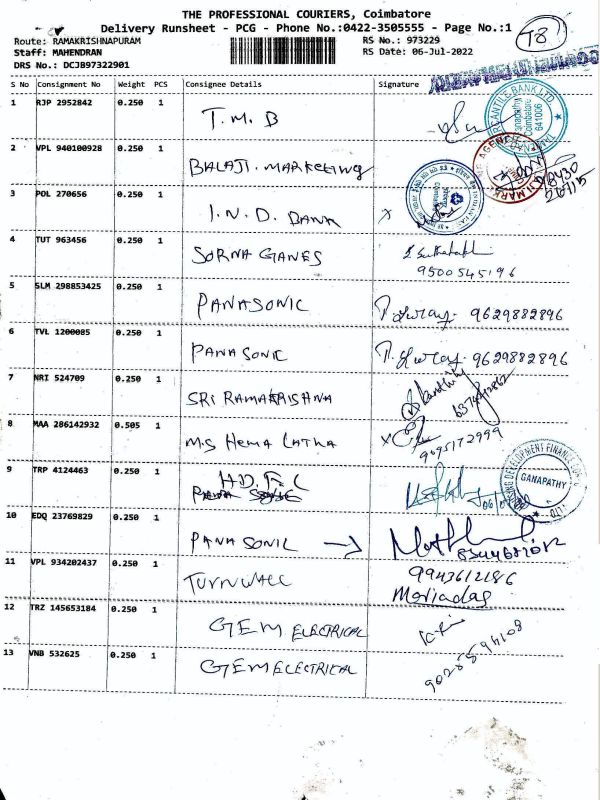 THE PROFESSIONAL COURIERS, Coimbatore
Delivery Runsheet - PCG - Phone No.:0422-3505555 - Page No.:1
T8
Route: RAMAKRISHNAPURAM
RS No.: 973229
Staff: MAHENDRAN
RS Date: 06-Jul-2022
DRS No.: DCJB97322901
S No Consignment No Weight PCS Consignee Details Signature
1 RJP 2952842 0.250 1 T.M.B
2 VPL 940100928 0.250 1 BALAJI.MARKETING
3 POL 270656 0.250 1 I.N.D. BANK X
4 TUT 963456 0.250 1 SORNA GANES 9500545196
5 SLM 298853425 0.250 1 PANASONIC 9629882896
6 TVL 1200085 0.250 1 PANASONIC 9629882896
7 NRI 524709 0.250 1 SRI RAMAKRISHNA
8 MAA 286142932 0.505 1 M.S HEMA LATHA X 9695172999
9 TRP 4124463 0.250 1 H.D.F.C
GANAPATHY
10 EDQ 23769829 0.250 1 PANASONIC
11 VPL 934202437 0.250 1 9943612186
Moriadas
12 TRZ 145653184 0.250 1 GEM ELECTRICAL
13 VNB 532625 0.250 1 GEM ELECTRICAL